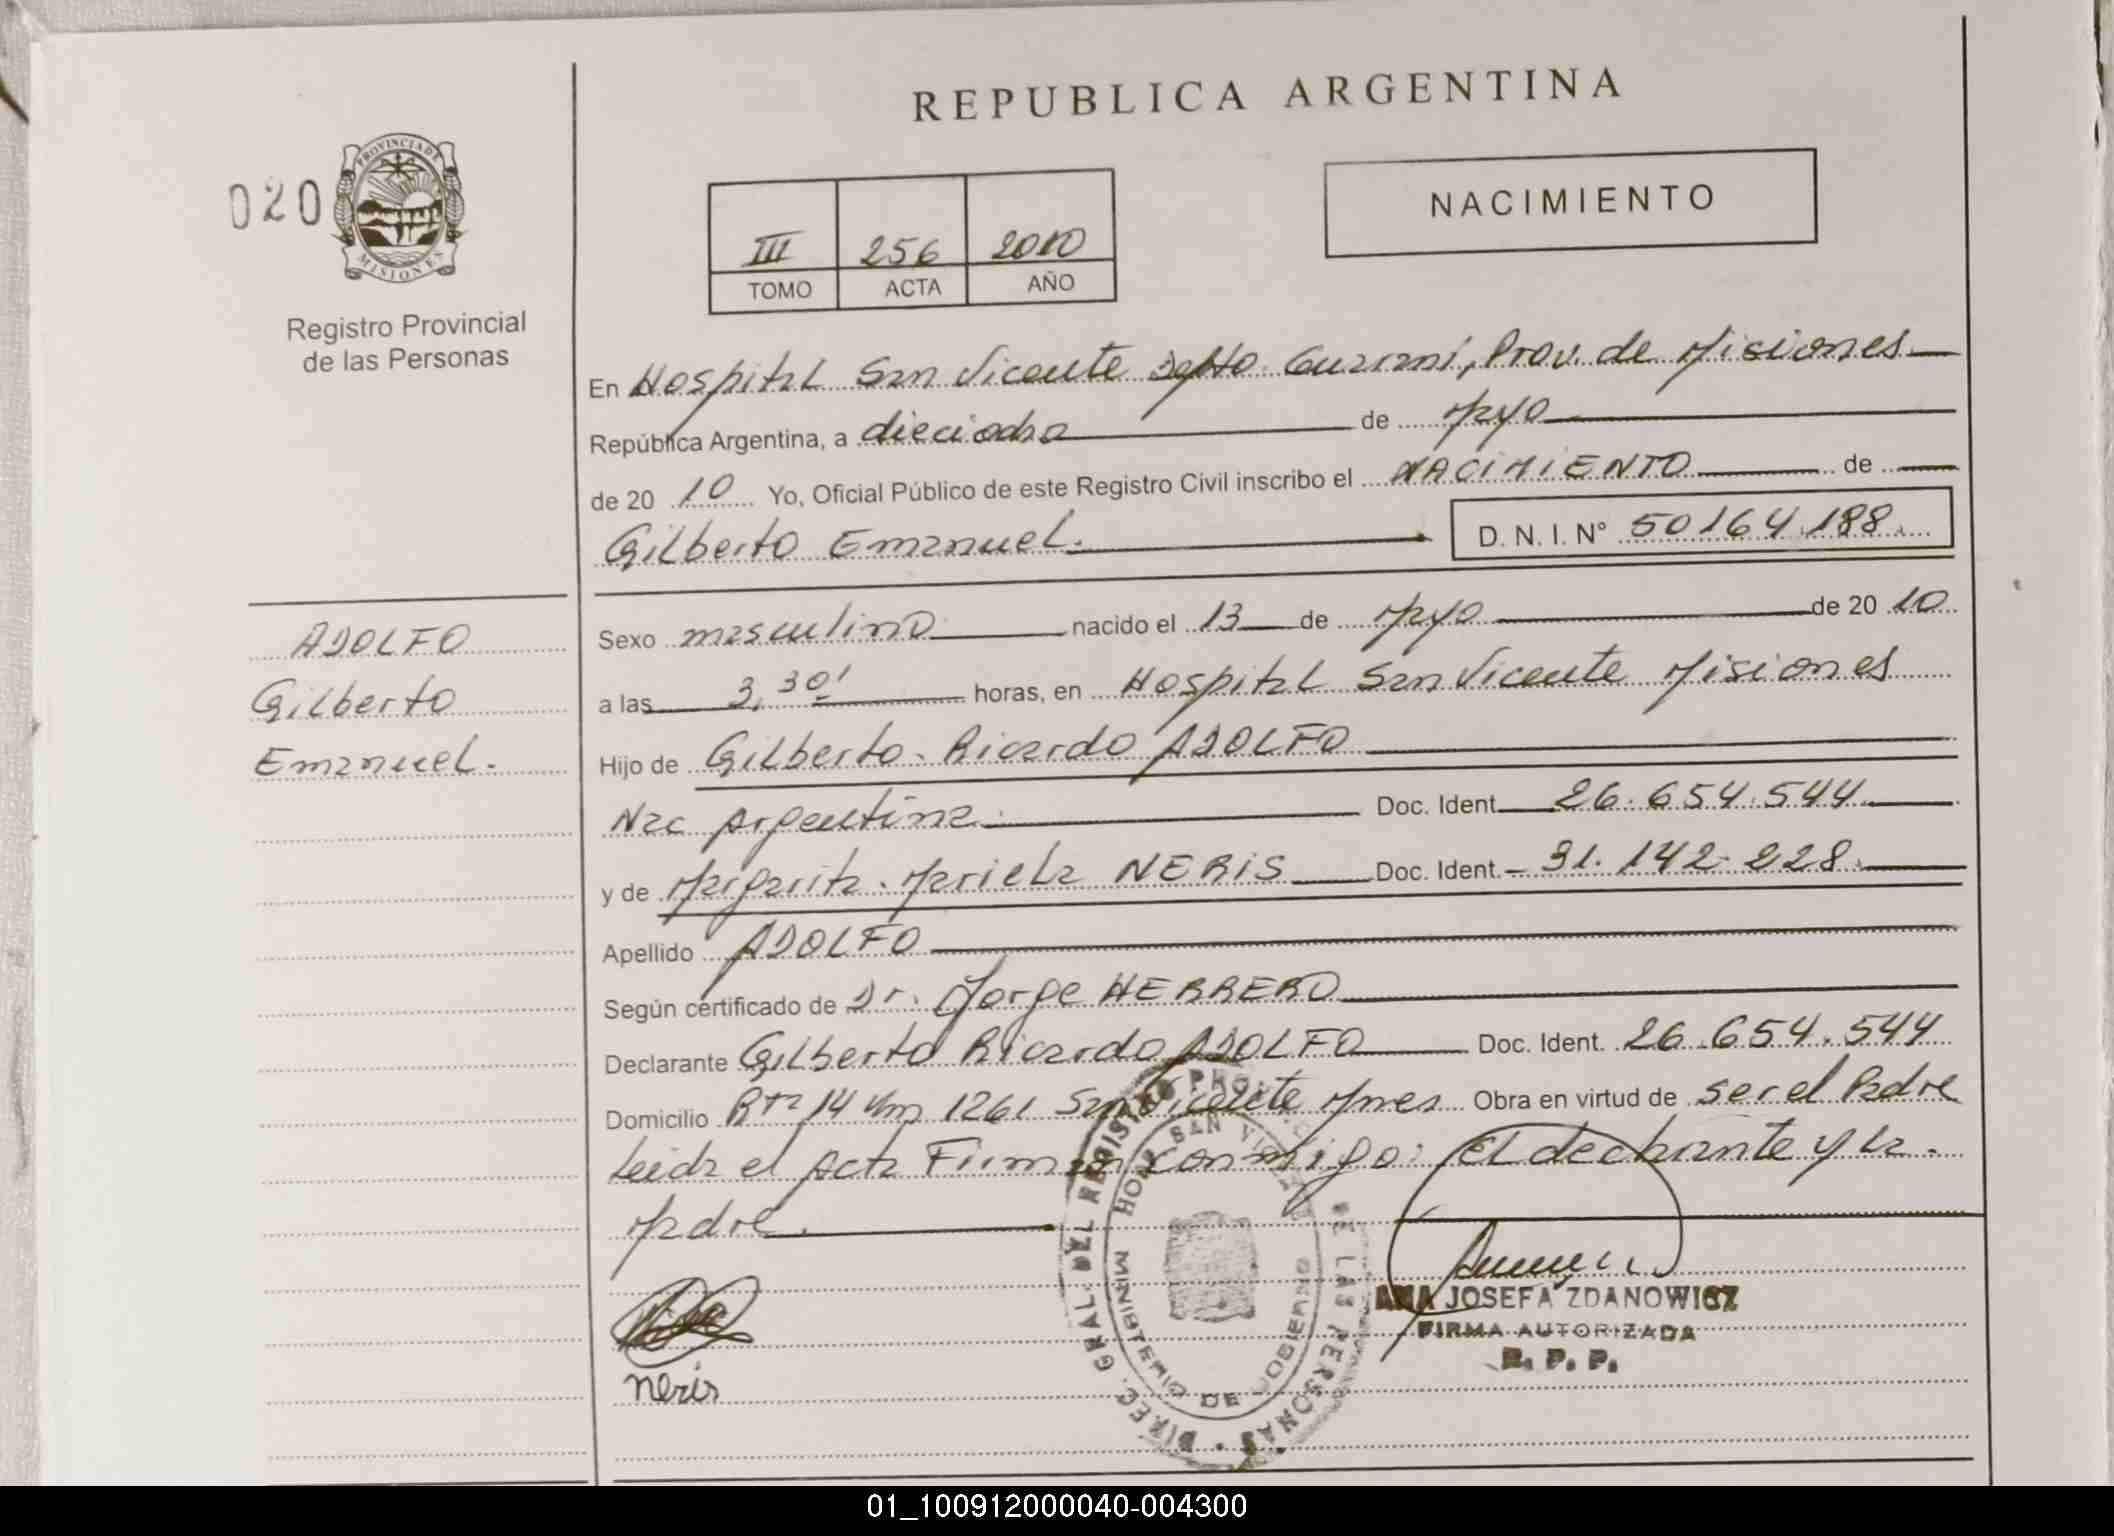 REPUBLICA ARGENTINA
020
PROVINCIA DE
MISIONES
Registro Provincial
de las Personas
III 256 2010
TOMO ACTA AÑO
NACIMIENTO
En Hospital San Vicente Depto. Guaraní, Prov. de Misiones
República Argentina, a dieciocho de Mayo
de 20 10 Yo, Oficial Público de este Registro Civil inscribo el NACIMIENTO de
Gilberto Emanuel. D. N. I. N° 50164.188.
ADOLFO
Gilberto
Emanuel.
Sexo masculino nacido el 13 de Mayo de 20 10
a las 3,30' horas, en Hospital San Vicente Misiones
Hijo de Gilberto Ricardo ADOLFO
Nac Argentina Doc. Ident. 26.654.544
y de Margarita Mariela NERIS Doc. Ident. 31.142.228.
Apellido ADOLFO
Según certificado de Dr. Jorge HERRERO
Declarante Gilberto Ricardo ADOLFO Doc. Ident. 26.654.544
Domicilio Rta 14 Km 1261 San Vicente Mnes Obra en virtud de ser el Padre
Leida el Acta Firman conmigo: el declarante y la
Madre.
DIREC. GRAL. DEL REGISTRO PRO. DE LAS PERSONAS
MINISTERIO DE GOBIERNO
SAN VICENTE
Neris
ANA JOSEFA ZDANOWICZ
FIRMA AUTORIZADA
R. P. P.
01_100912000040-004300